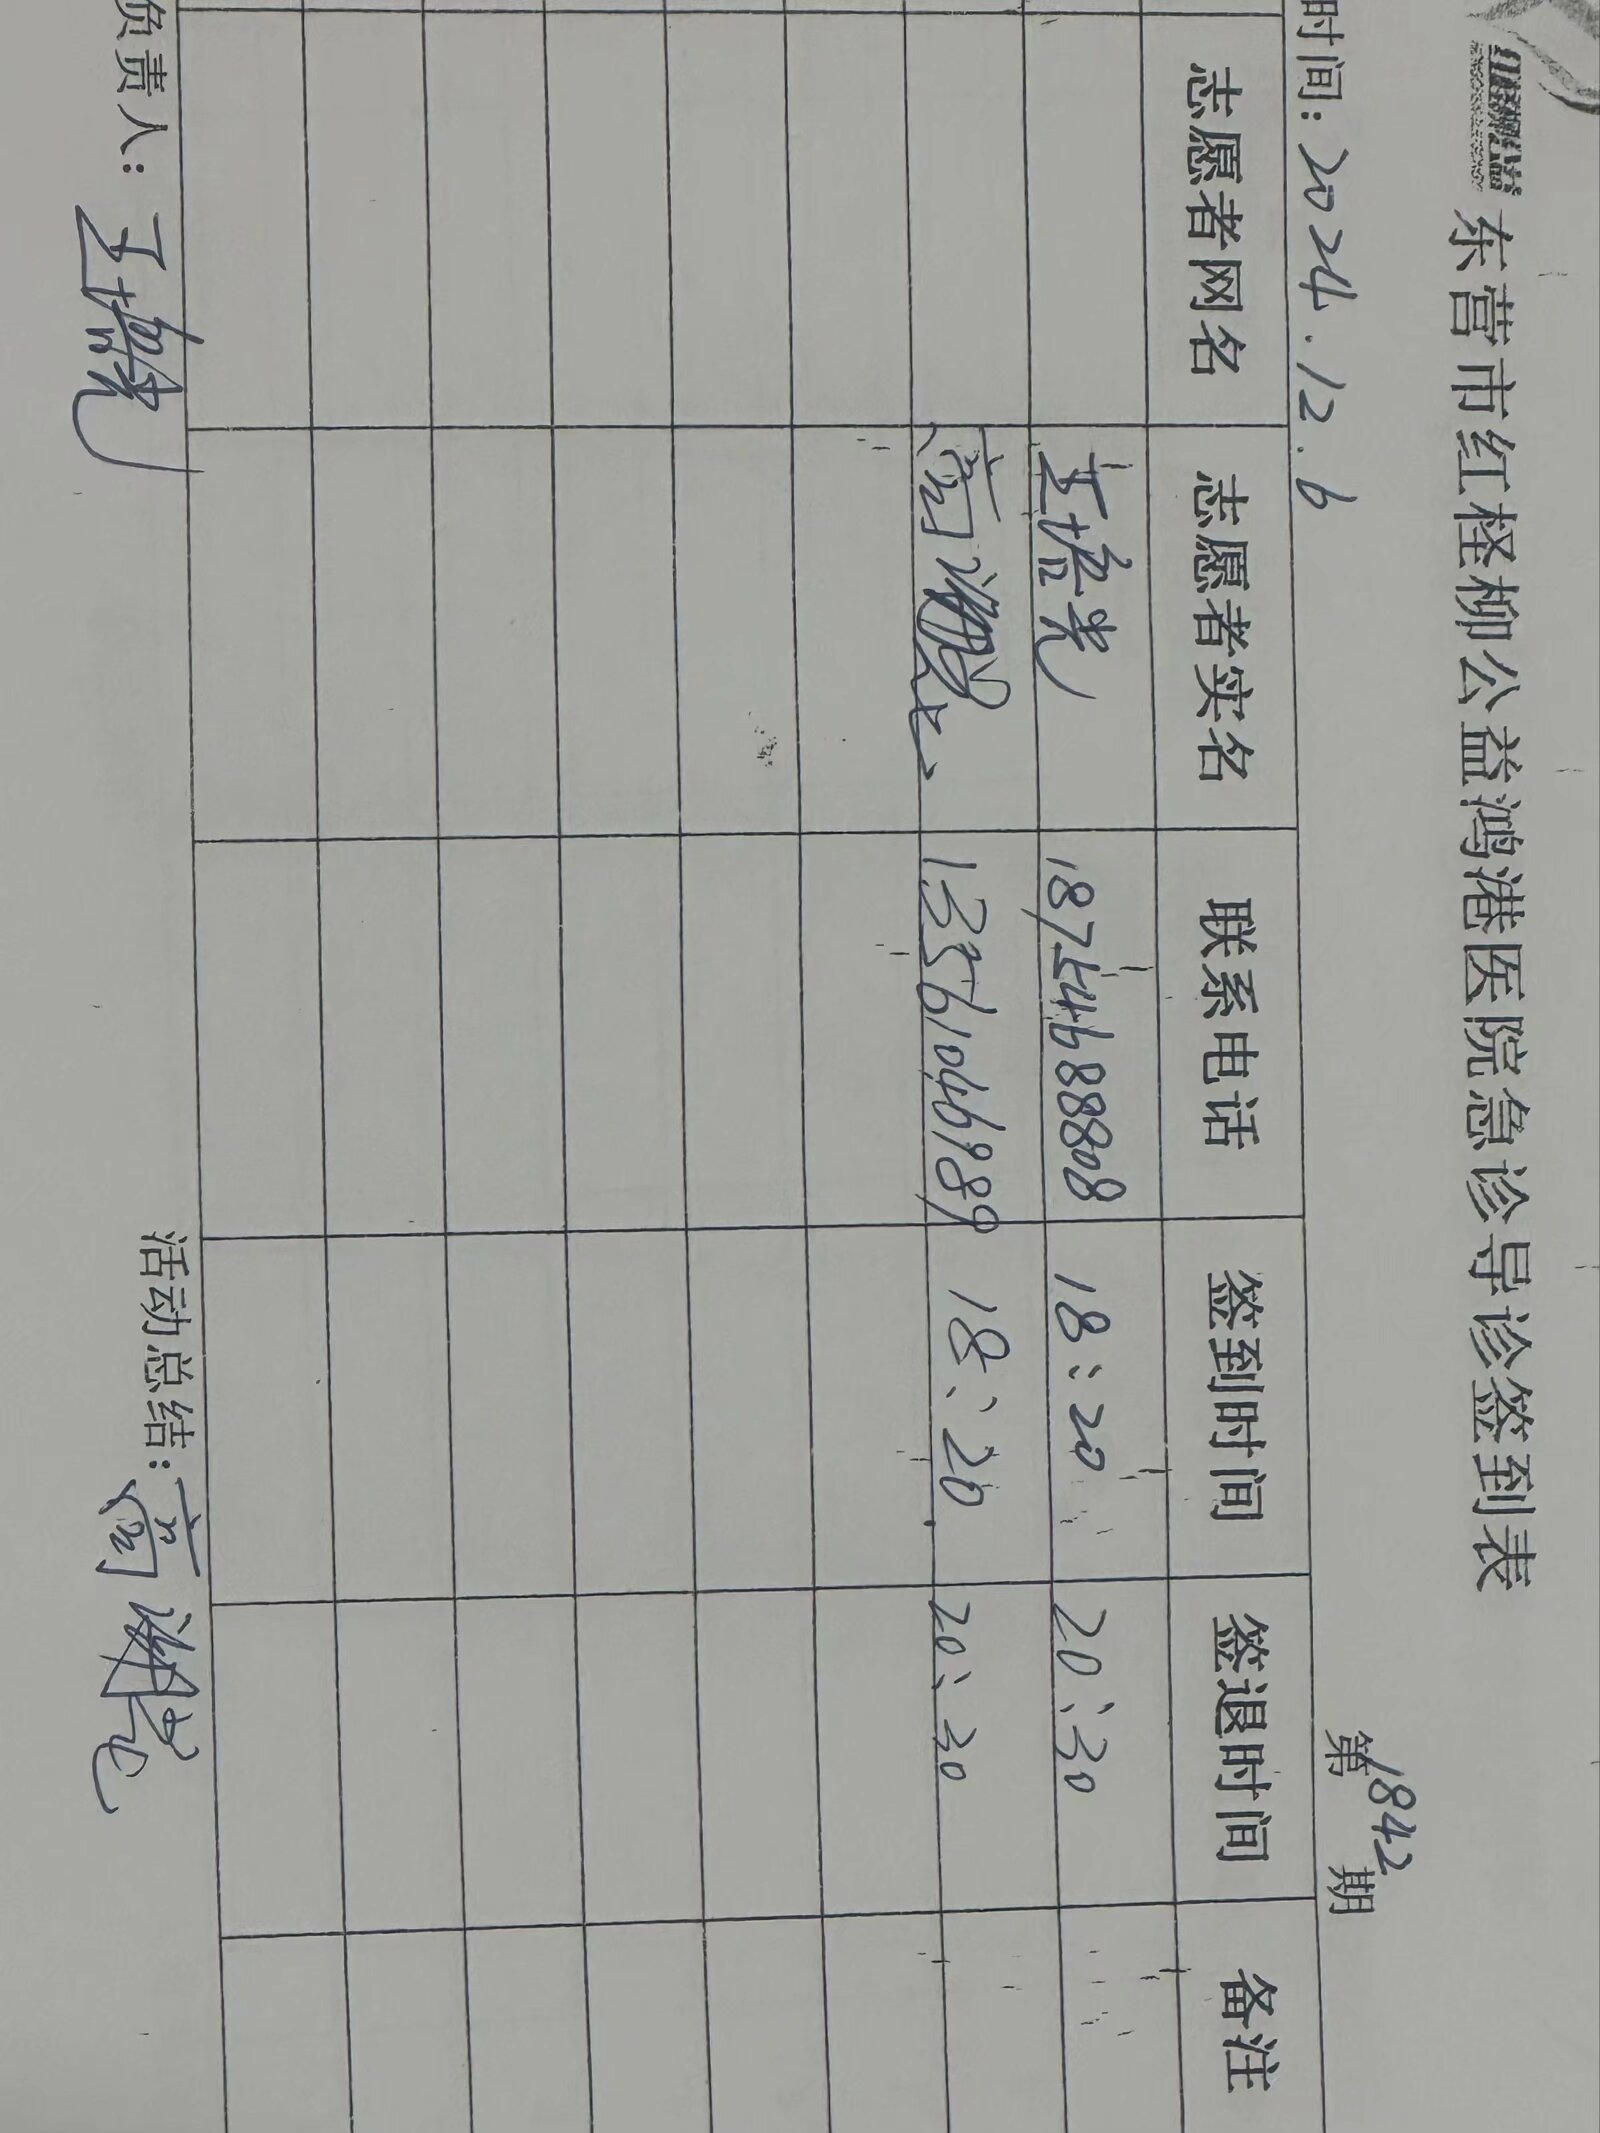 东营市红柽柳公益鸿港医院急诊导诊签到表
时间：2024.12.6 第1842期
志愿者网名 志愿者实名 联系电话 签到时间 签退时间 备注
王培光 18754688808 18:20 20:30
13561046989 18:20 20:30
负责人：王培光 活动总结：